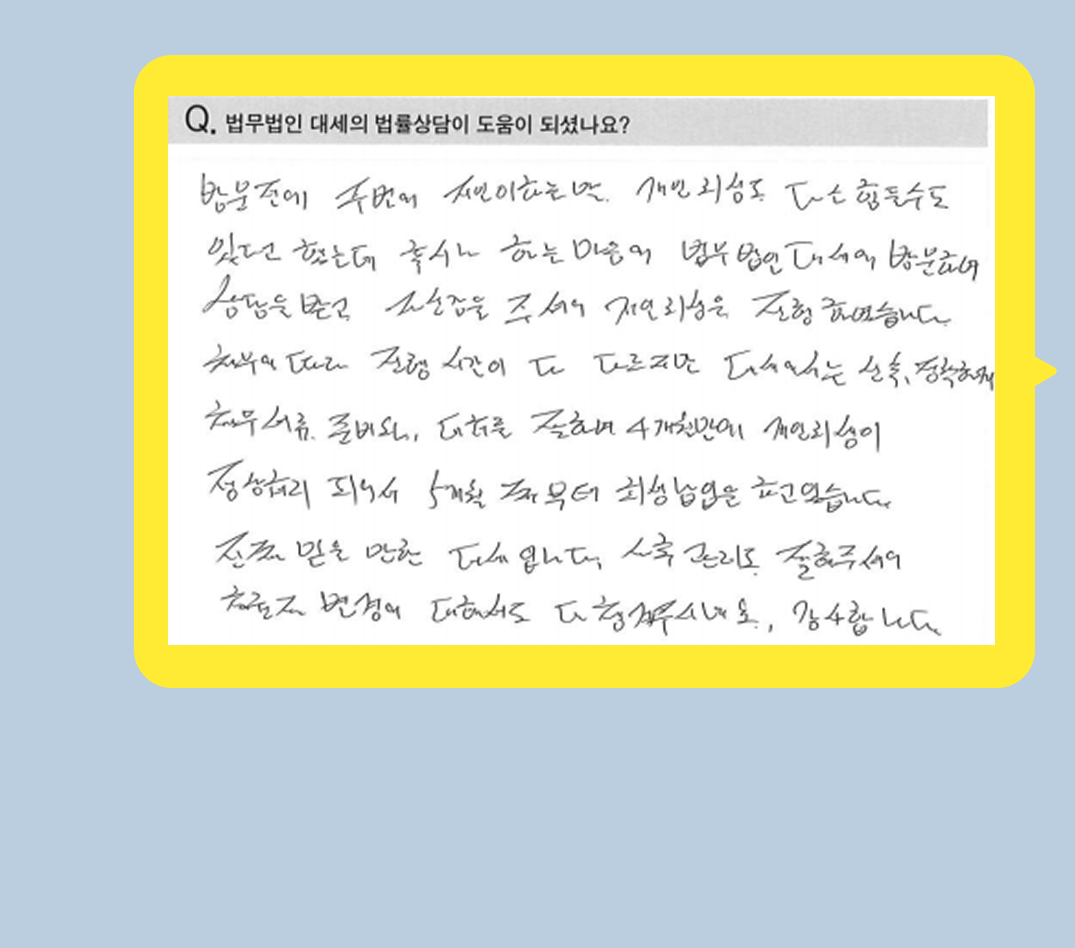 Q. 법무법인 대세의 법률상담이 도움이 되셨나요?
방문전에 주변에 지인이하는말. 개인회생도 다 힘들수도
있다고 했는데 혹시나 하는 마음에 법무법인 대세에 방문하여
상담을 받고 조언을 주셔서 개인회생을 진행하였습니다.
채무에 따라 진행 시간이 다 다르지만 대세에서는 신속, 정확하게
채무서류 준비와, 대처를 잘하여 4개월만에 개인회생이
정상처리 되어서 5개월 째부터 회생납입을 하고있습니다.
진짜 믿을 만한 대세입니다, 사후 관리도 잘해주셔서
변경에 대해서도 다 해주시네요, 감사합니다.